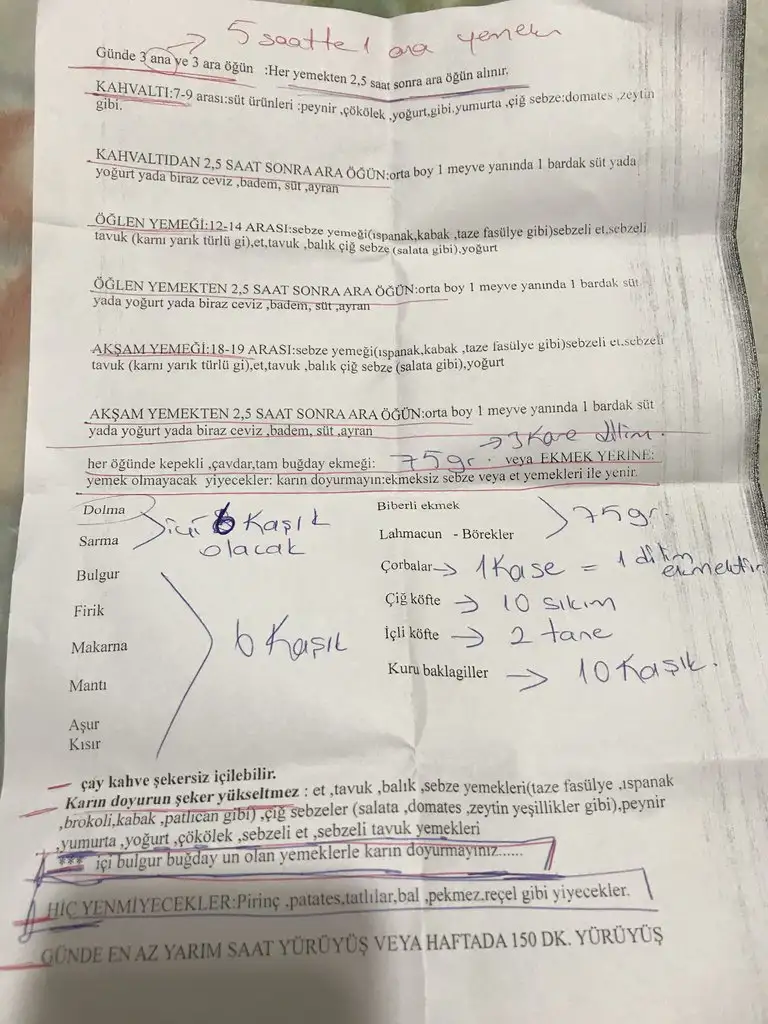 5 saatte 1 ara yemek
Günde 3 ana ve 3 ara öğün :Her yemekten 2,5 saat sonra ara öğün alınır.
KAHVALTI:7-9 arası:süt ürünleri :peynir ,çökölek ,yoğurt,gibi.yumurta ,çiğ sebze:domates ,zeytin
gibi.
KAHVALTIDAN 2,5 SAAT SONRA ARA ÖĞÜN:orta boy 1 meyve yanında 1 bardak süt yada
yoğurt yada biraz ceviz ,badem, süt ,ayran
ÖĞLEN YEMEĞİ:12-14 ARASI:sebze yemeği(ıspanak,kabak ,taze fasülye gibi)sebzeli et,sebzeli
tavuk (karnı yarık türlü gi),et,tavuk ,balık çiğ sebze (salata gibi),yoğurt
ÖĞLEN YEMEKTEN 2,5 SAAT SONRA ARA ÖĞÜN:orta boy 1 meyve yanında 1 bardak süt
yada yoğurt yada biraz ceviz ,badem, süt ,ayran
AKŞAM YEMEĞİ:18-19 ARASI:sebze yemeği(ıspanak,kabak ,taze fasülye gibi)sebzeli et,sebzeli
tavuk (karnı yarık türlü gi),et,tavuk ,balık çiğ sebze (salata gibi),yoğurt
AKŞAM YEMEKTEN 2,5 SAAT SONRA ARA ÖĞÜN:orta boy 1 meyve yanında 1 bardak süt
yada yoğurt yada biraz ceviz ,badem, süt ,ayran
→ 3 Kare dilim.
her öğünde kepekli ,çavdar,tam buğday ekmeği: 75gr. veya EKMEK YERİNE:
yemek olmayacak yiyecekler: karın doyurmayın:ekmeksiz sebze veya et yemekleri ile yenir.
Dolma
Sarma
içi 6 Kaşık
olacak
Bulgur
Firik
Makarna
Mantı
Aşur
Kısır
6 Kaşık
Biberli ekmek
Lahmacun - Börekler
75gr.
Çorbalar→ 1 Kase = 1 dilim
ekmektir.
Çiğ köfte → 10 sıkım
İçli köfte → 2 tane
Kuru baklagiller → 10 Kaşık.
çay kahve şekersiz içilebilir.
Karın doyurun şeker yükseltmez : et ,tavuk ,balık ,sebze yemekleri(taze fasülye ,ıspanak
,brokoli,kabak ,patlıcan gibi) ,çiğ sebzeler (salata ,domates ,zeytin yeşillikler gibi),peynir
,yumurta ,yoğurt ,çökölek ,sebzeli et ,sebzeli tavuk yemekleri
*** içi bulgur buğday un olan yemeklerle karın doyurmayınız......
HİÇ YENMİYECEKLER:Pirinç ,patates,tatlılar,bal ,pekmez,reçel gibi yiyecekler.
GÜNDE EN AZ YARIM SAAT YÜRÜYÜŞ VEYA HAFTADA 150 DK. YÜRÜYÜŞ